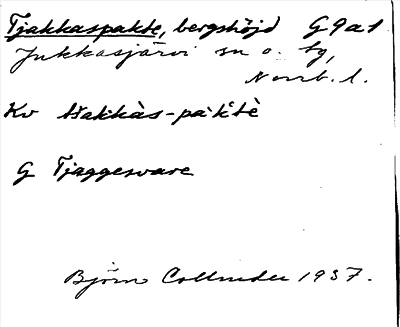 Tjakkaspakte, bergshöjd G9a1
Jukkasjärvi sn o. tg,
Norrb. l.
Kv tšakkàs-pàktè
G Tjaggesvare
Björn Collinder 1937.